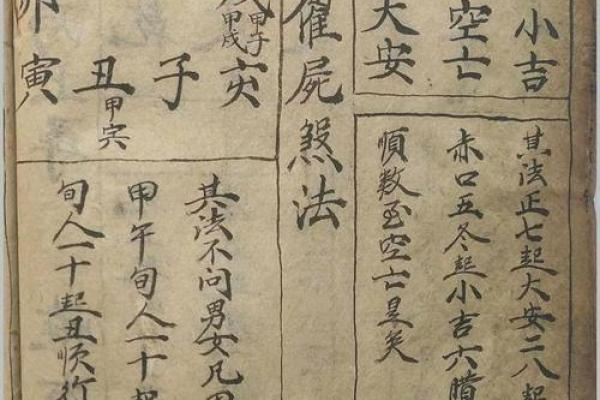 小吉
空亡
大安
其法正七起大安二八起
赤口五冬起小吉六臘
順数至空亡是矣
催屍煞法
甲子
甲戌
亥
子
丑
甲寅
寅
其法不问男女凡
甲午旬人一十起
旬人一十起丑順行